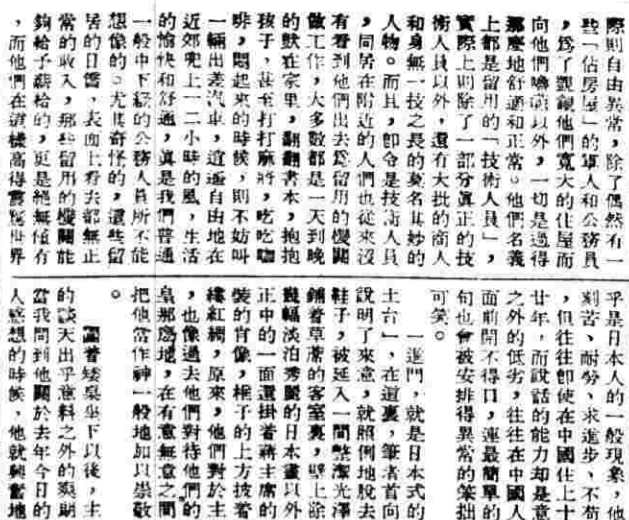 際則自由異常，除了偶然有一
些「佔房屋」的軍人和公務員
，爲了觀觀他們寬大的住屋而
向他們嚕囌以外，一切是過得
那麼地舒適和正常。他們名義
上都是留用的「技術人員」，
實際上則除了一部分眞正的技
術人員以外，還有大批的商人
和身無一技之長的莫名其妙的
人物。而且，卽令是技術人員
，同居在附近的人們也從來沒
有看到他們出去爲留用的機關
做工作，大多數都是一天到晚
的獃在家里，翻翻書本，抱抱
孩子，甚至打打麻將，吃吃咖
啡，悶起來的時候，則不妨叫
一輛出差汽車，逍遙自由地在
近郊兜上一二小時的風，生活
的愉快和舒適，眞是我們普通
一般中下級的公務人員所不能
想像的。尤其奇怪的，這些留
居的日僑，表面上看去都無正
常的收入，那些留用的機關能
夠給予薪給的，更是絕無僅有
，而他們在這樣高得震驚世界
乎是日本人的一般現象，他
刻苦、耐勞、求進步、不苟
，但往往卽使在中國住上十
廿年，而說話的能力却是意
之外的低劣，往往在中國人
面前開不得口，連最簡單的
句也會被安排得異常的笨拙
可笑。
一進門，就是日本式的
土台」，在這裏，筆者首向
說明了來意，就照例地脫去
鞋子，被延入一間整潔光澤
鋪着草蓆的客室裏，壁上除
幾幅淡泊秀麗的日本畫以外
正中的一面還掛着蔣主席的
裝的肖像，框子的上方披着
縷紅綢，原來，他們對於主
，也像過去他們對待他們的
皇那麼地，在有意無意之間
把他當作神一般地加以崇敬
。
圍着矮桌坐下以後，主
的談天出乎意料之外的爽朗
當我問到他關於去年今日的
人感想的時候，他就興奮地